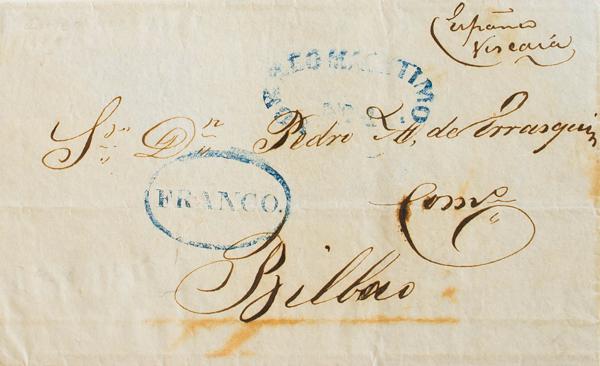 España
Viscaya
CORREO MARITIMO
Sr. Dn. Pedro M. de Errasquin
FRANCO.
Como
Bilbao